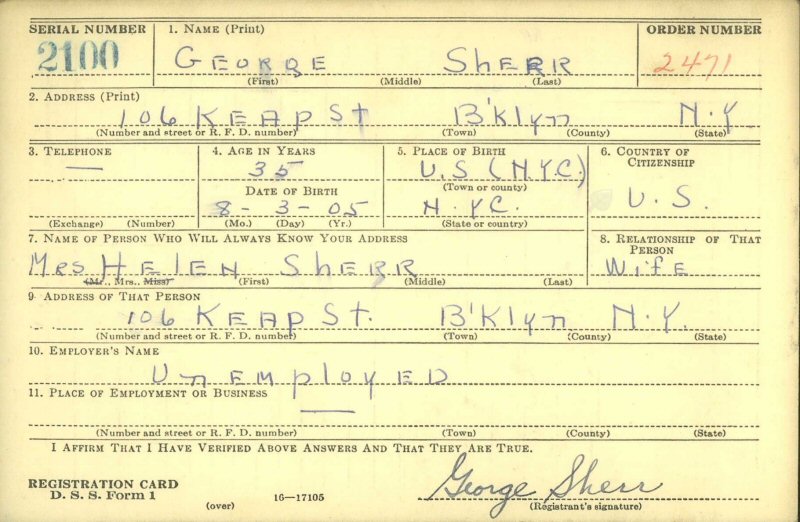 SERIAL NUMBER 1. NAME (Print) ORDER NUMBER
2100 GEORGE SHERR 2471
(First) (Middle) (Last)
2. ADDRESS (Print)
106 KEAP St B'klyn N.Y.
(Number and street or R. F. D. number) (Town) (County) (State)
3. TELEPHONE 4. AGE IN YEARS 5. PLACE OF BIRTH 6. COUNTRY OF CITIZENSHIP
— 35 U.S (N.Y.C.)
DATE OF BIRTH (Town or county) U.S.
8-3-05 N.YC.
(Exchange) (Number) (Mo.) (Day) (Yr.) (State or country)
7. NAME OF PERSON WHO WILL ALWAYS KNOW YOUR ADDRESS 8. RELATIONSHIP OF THAT PERSON
Mrs HELEN SHERR Wife
(Mr., Mrs., Miss) (First) (Middle) (Last)
9. ADDRESS OF THAT PERSON
106 KEAP St. B'Klyn N.Y.
(Number and street or R. F. D. number) (Town) (County) (State)
10. EMPLOYER'S NAME
UnEmployED
11. PLACE OF EMPLOYMENT OR BUSINESS
—
(Number and street or R. F. D. number) (Town) (County) (State)
I AFFIRM THAT I HAVE VERIFIED ABOVE ANSWERS AND THAT THEY ARE TRUE.
REGISTRATION CARD George Sherr
D. S. S. Form 1 (over) 16—17105 (Registrant's signature)